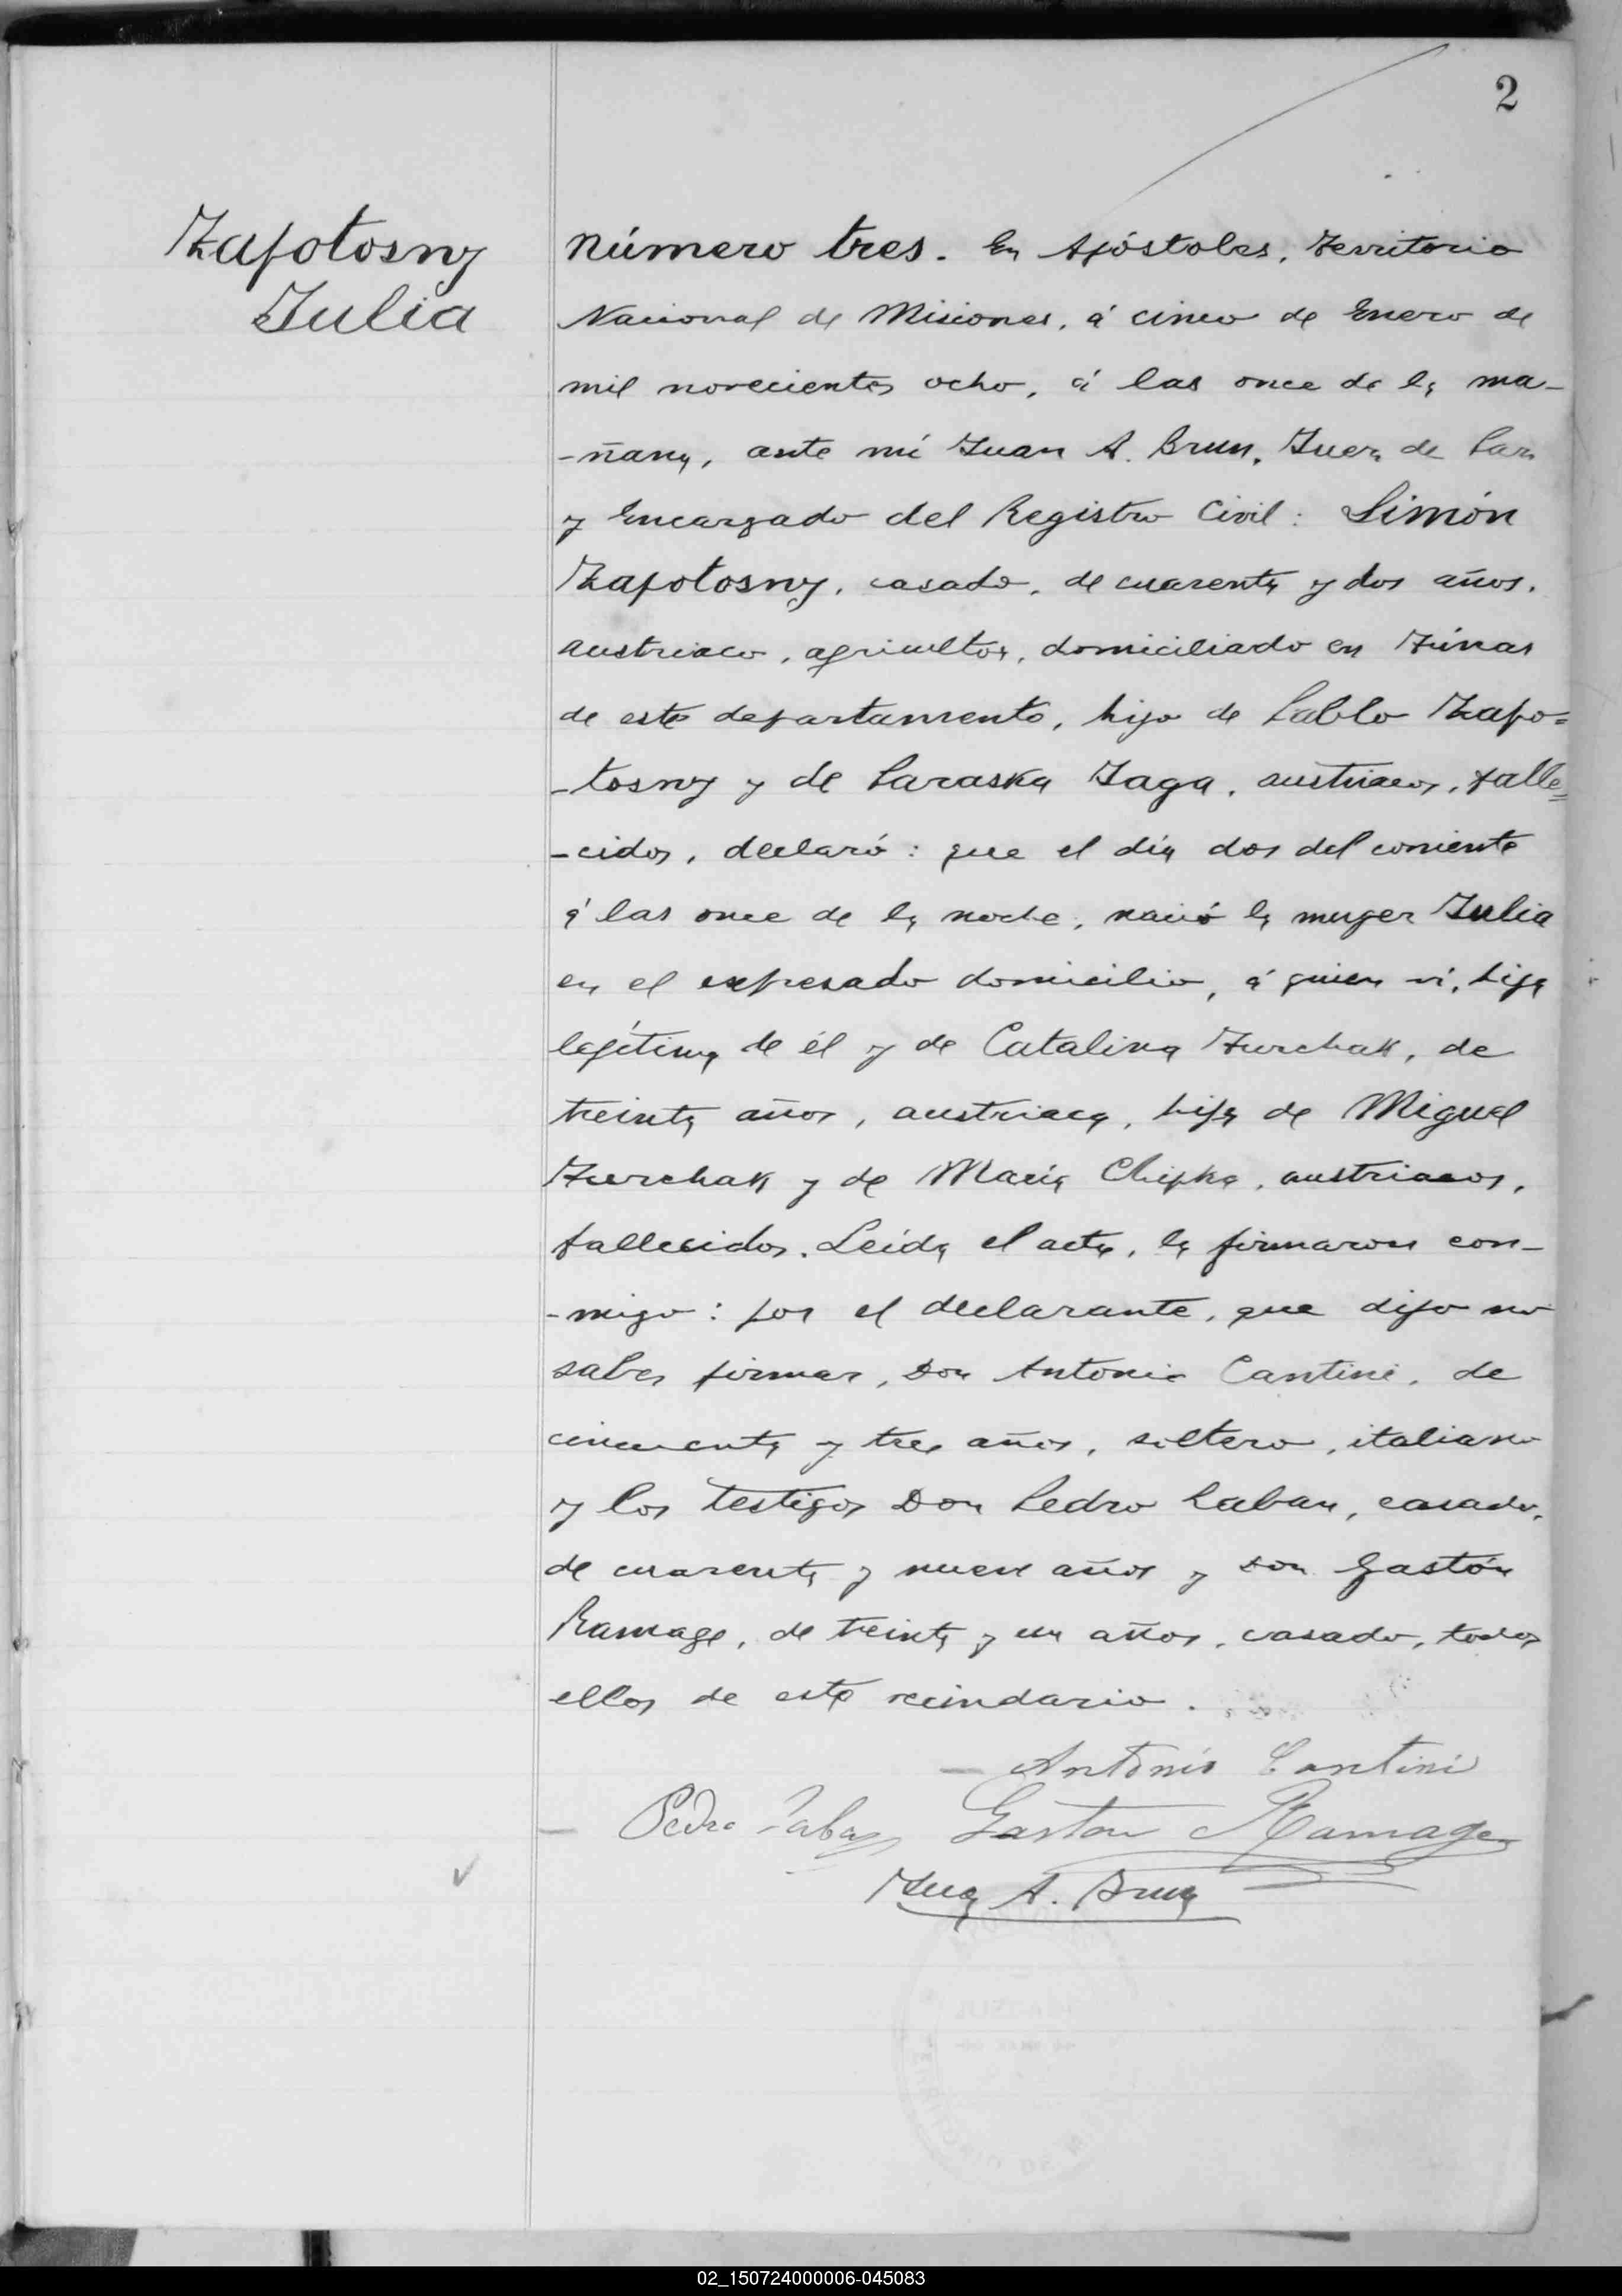 2
Zapotosny
Julia
Número tres. En Apóstoles, Territorio
Nacional de Misiones, á cinco de Enero de
mil novecientos ocho, á las once de la ma-
-ñana, ante mí Juan A. Brun, Juez de Paz
y Encargado del Registro Civil: Simón
Zapotosny, casado, de cuarenta y dos años,
austriaco, agricultor, domiciliado en
de este departamento, hijo de Pablo Zapo=
-tosny y de Paraska Jaga, austriacos, falle=
-cidos, declaró: que el día dos del corriente
á las once de la noche, nació la muger Julia
en el expresado domicilio, á quien ví, hija
legítima de él y de Catalina Turchak, de
treinta años, austriaca, hija de Miguel
Turchak y de María Chipka, austriacos,
fallecidos. Leida el acta, la firmaron con-
-migo: por el declarante, que dijo no
saber firmar, Don Antonio Cantini, de
cincuenta y tres años, soltero, italiano
y los testigos Don Pedro Laban, casado,
de cuarenta y nueve años y Don Gastón
Ramage, de treinta y un años, casado, todos
ellos de este vecindario.
Antonio Cantini
Pedro Laban Gaston Ramage
Juan A. Brun
02_150724000006-045083